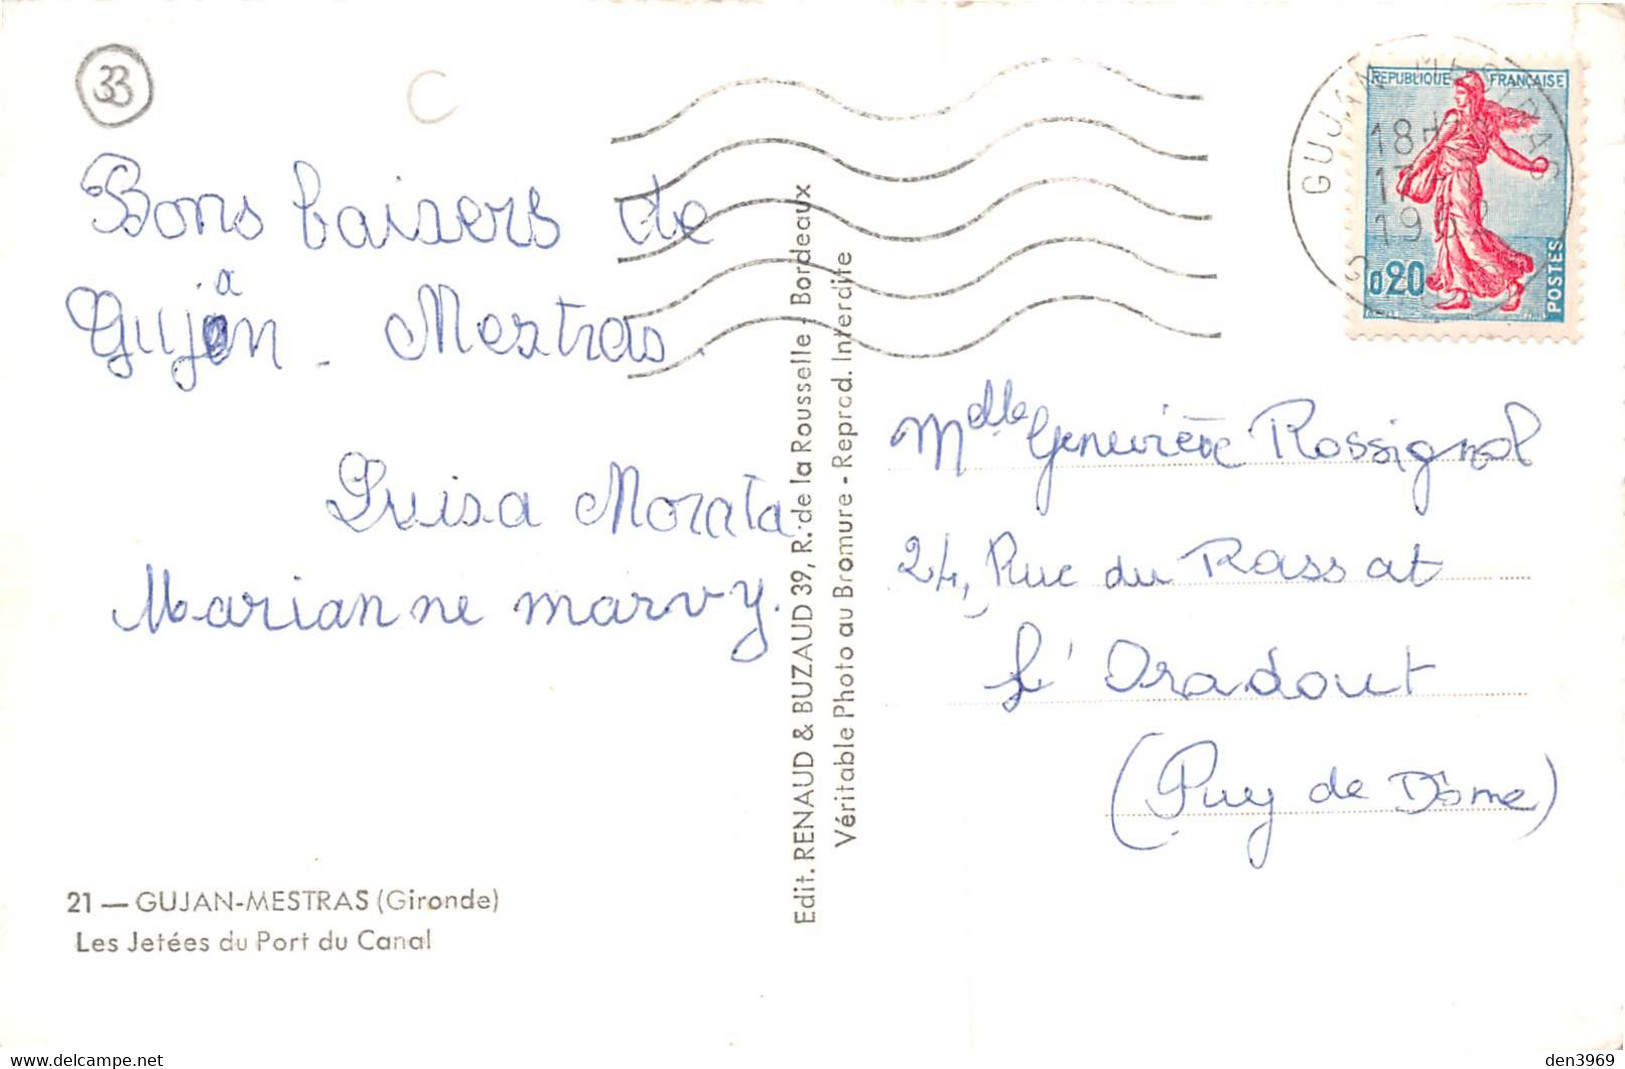 33
C
Bons baisers de
Gujan - Mestras.
Luisa Morata
Marianne marvy.
21 — GUJAN-MESTRAS (Gironde)
Les Jetées du Port du Canal
Edit. RENAUD & BUZAUD 39, R. de la Rousselle - Bordeaux
Véritable Photo au Bromure - Reprod. Interdite
REPUBLIQUE FRANÇAISE
0,20
POSTES
GUJAN MESTRAS
18H
17
196
Mdlle Geneviève Rossignol
24, Rue du Rassat
L' Oradout
(Puy de Dôme)
www.delcampe.net
den3969